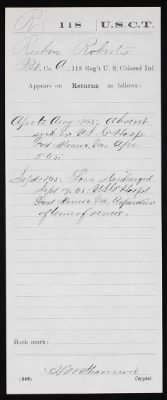 R | 118 | U.S.C.T.
Ruben Roberts
Pvt, Co. A, 118 Reg't U. S. Colored Inf
Appears on Returns as follows:
Apr to Aug 1865, Absent
sick in U.S. G. Hosp.
Fort Monroe Va. Apr
5. 65.
Sept 1865. Discharged
Sept 19. 65. US G Hospl
Fort Monroe Va. Expiration
of term of service.
Book mark:
(546)
Copyist.